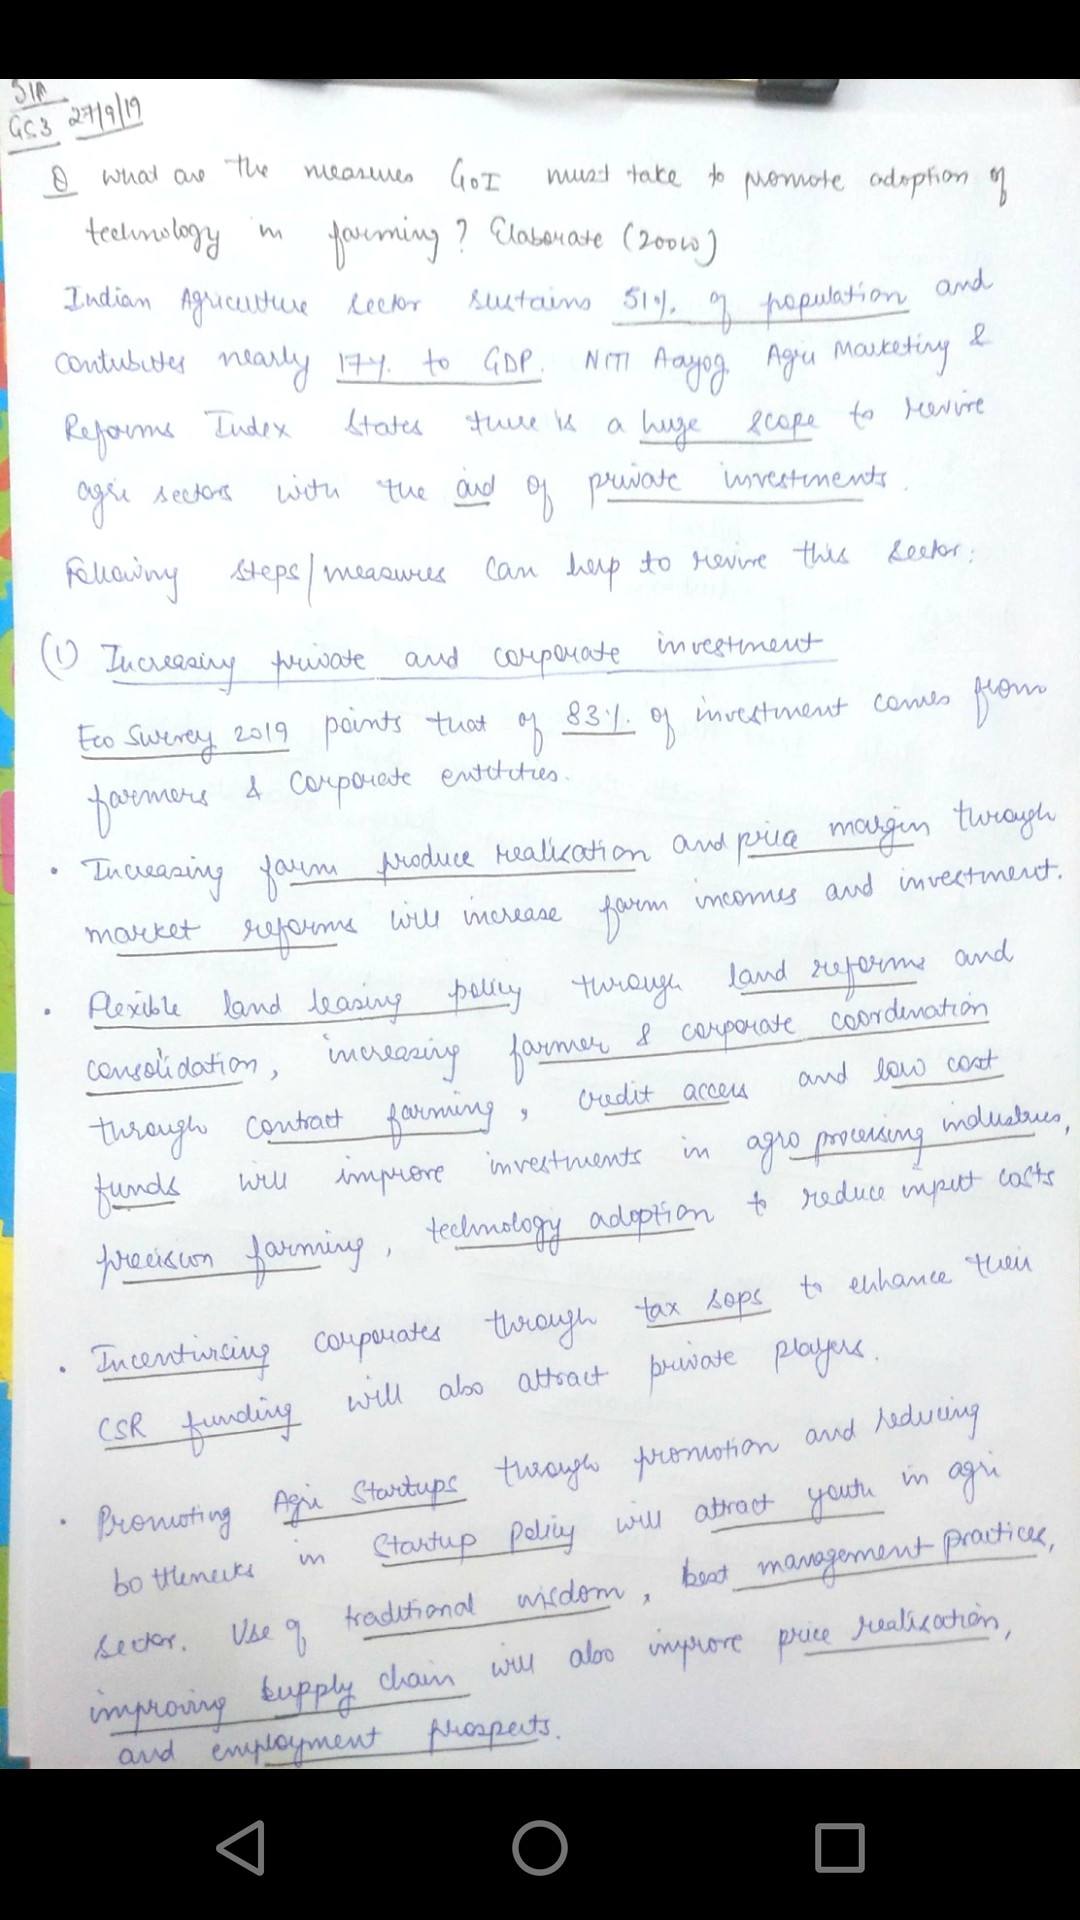 SIA
GS3 27/9/19
Q What are the measures GoI must take to promote adoption of
technology in farming? Elaborate (200w)
Indian Agriculture sector sustains 51% of population and
contributes nearly 17% to GDP. NITI Aayog Agri Marketing &
Reforms Index States there is a huge scope to revive
agri sectors with the aid of private investments.
Following steps/measures can help to revive this sector:
(1) Increasing private and corporate investment
Eco Survey 2019 points that of 83% of investment comes from
farmers & corporate entitities.
• Increasing farm produce realisation and price margin through
market reforms will increase farm incomes and investment.
• Flexible land leasing policy through land reforms and
consolidation, increasing farmer & corporate coordination
through contract farming, credit access and low cost
funds will improve investments in agro processing industries,
precision farming, technology adoption to reduce input costs
• Incentivising corporates through tax sops to enhance their
CSR funding will also attract private players.
• Promoting Agri Startups through promotion and reducing
bottlenecks in Startup policy will attract youth in agri
sector. Use of traditional wisdom, best management practices,
improving supply chain will also improve price realisation,
and employment prospects.